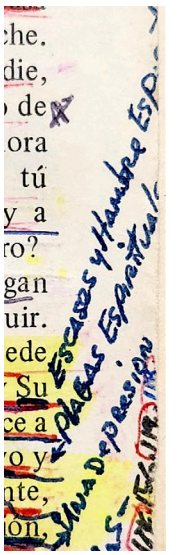 che.
die,
o de
nora
tú
y a
ro?
gan
uir.
ede
y Su
ce a
vo y
nte,
ón,
Escases y Hambre Esp
Plagas Espiritual
Una Depresion